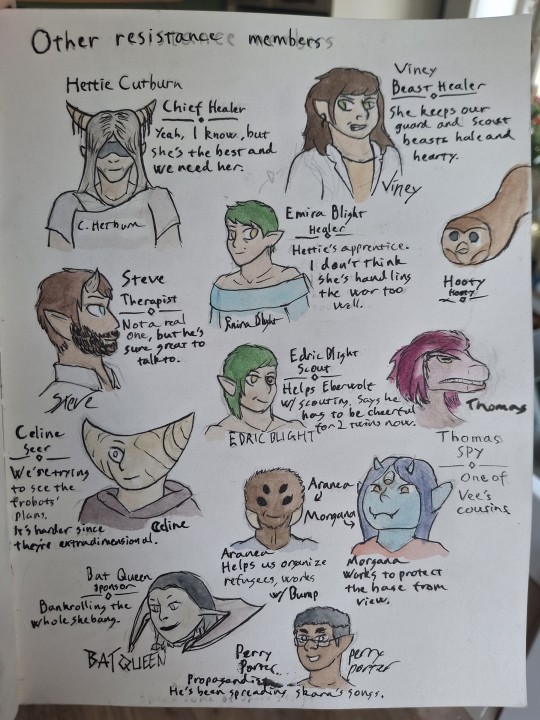 Other resistance members
Hettie Cutburn
Chief Healer
Yeah, I know, but
she's the best and
we need her.
Viney
Beast Healer
She keeps our
guard and scout
beasts hale and
hearty.
Viney
Emira Blight
Healer
Hettie's apprentice.
I don't think
she's handling
the war too
well.
Emira Blight
Hooty
Hooty
Steve
Therapist
Not a real
one, but he's
sure great to
talk to.
Steve
Edric Blight
Scout
Helps Eberwolf
w/ scouting. Says he
has to be cheerful
for 2 twins now.
EDRIC BLIGHT
Thomas
Thomas
SPY
One of
Vee's
cousins
Celine
Seer
We're trying
to see the
frobots'
plans.
It's harder since
they're extradimensional.
Celine
Aranea
Morgana
Aranea
Helps us organize
refugees, works
w/ Bump
Morgana
Works to protect
the base from
view.
Bat Queen
sponsor
Bankrolling the
whole shebang.
BAT QUEEN
Perry
Porter
perry
porter
Propagandist
He's been spreading skara's songs.